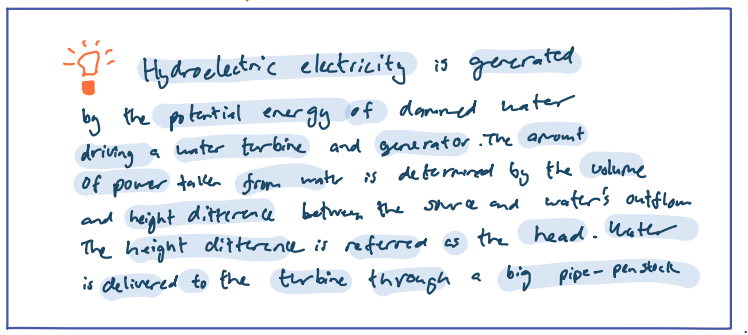 Hydroelectric electricity is generated
by the potential energy of dammed water
driving a water turbine and generator. The amount
of power taken from water is determined by the volume
and height difference between the source and water's outflow
The height difference is referred as the head. Water
is delivered to the turbine through a big pipe-penstock